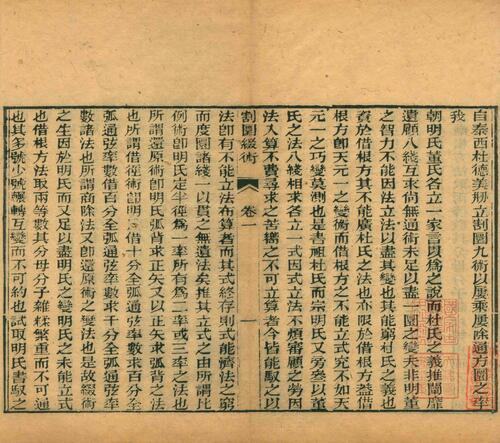 自泰西杜德美剏立割圜九術以屢乘屢除通方圜之率
我
朝明氏董氏各立一家言以爲之說而杜氏之義推闡靡
遺顧八綫互求尚無通術未足以盡一圜之變夫非明董
之智力不能因法立法以盡其變也其能窮杜氏之義也
資於借根方其不能廣杜氏之法也亦限於借根方蓋借
根方卽天元一之變術而借根方之不能立式究不如天
元一之巧變莫測也是書祖杜氏而宗明氏又旁參以董
氏之法八綫相求各立一式因式立法不煩審顧之勞因
法入算不費尋求之苦習之不可立算者今皆能馭之以
割圜綴術 卷一 一
法卽有不能立法布算者而其式終存則式能濟法之窮
而度圜諸綫一以貫之無遺法矣推其立式之由所謂比
例術卽明氏定半徑爲一率所有爲二率或三率之法也
所謂還原術卽明氏弧背求正矢又以正矢求弧背之法
也所謂借徑術卽明氏借十分全弧通弦率數求百分全
弧通弦率數借百分全弧通弦率數求千分全弧通弦率
數諸法也所謂商除法又卽還原術之變法也是故綴術
之生因於明氏而又足以盡明氏之變明氏之未能立式
也借根方法取兩等數其分母分子雜糅繁重而不可通
也其多號少號輾轉互變而不可約也試取明氏書馭之